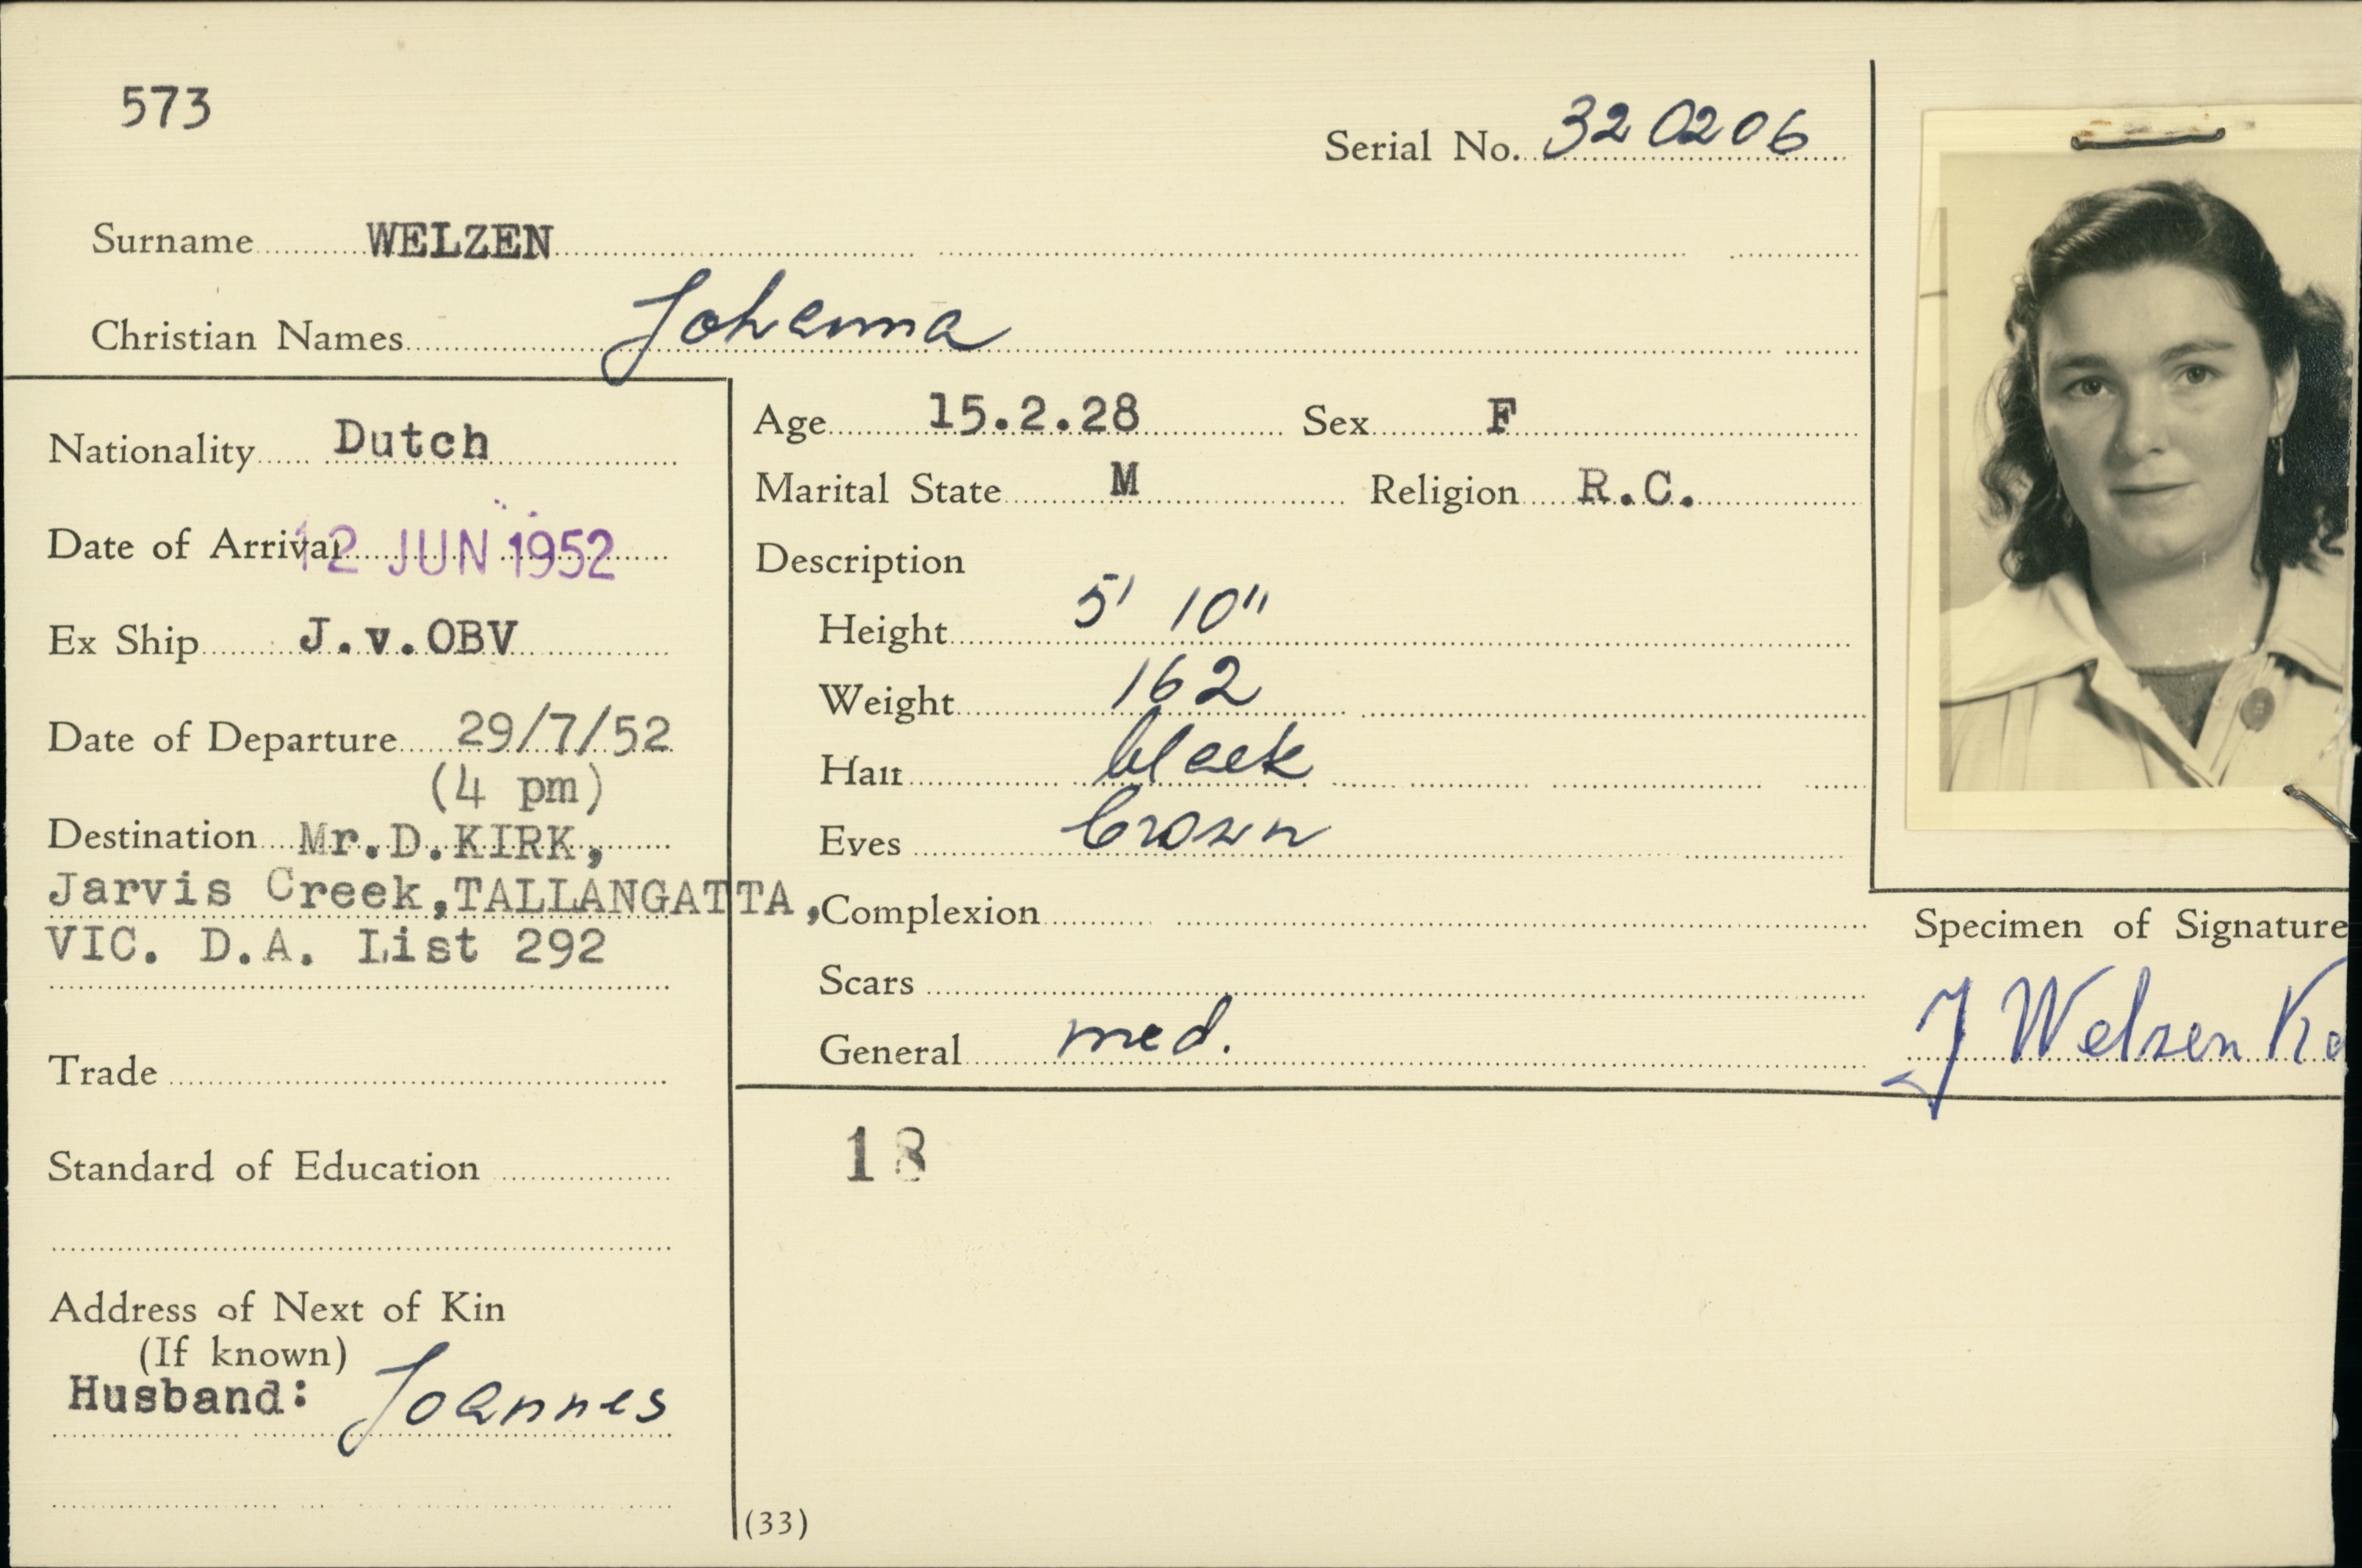 573
Serial No. 320206
Surname WELZEN
Christian Names Johanna
Nationality Dutch
Date of Arrival 12 JUN 1952
Ex Ship J.v.OBV
Date of Departure 29/7/52
(4 pm)
Destination Mr.D.KIRK,
Jarvis Creek,TALLANGATTA,
VIC. D.A. List 292
Trade
Standard of Education
Address of Next of Kin
(If known)
Husband: Joannes
Age 15.2.28 Sex F
Marital State M Religion R.C.
Description
Height 5' 10"
Weight 162
Hair black
Eyes brown
Complexion
Scars
General med.
18
(33)
Specimen of Signature
J Welzen